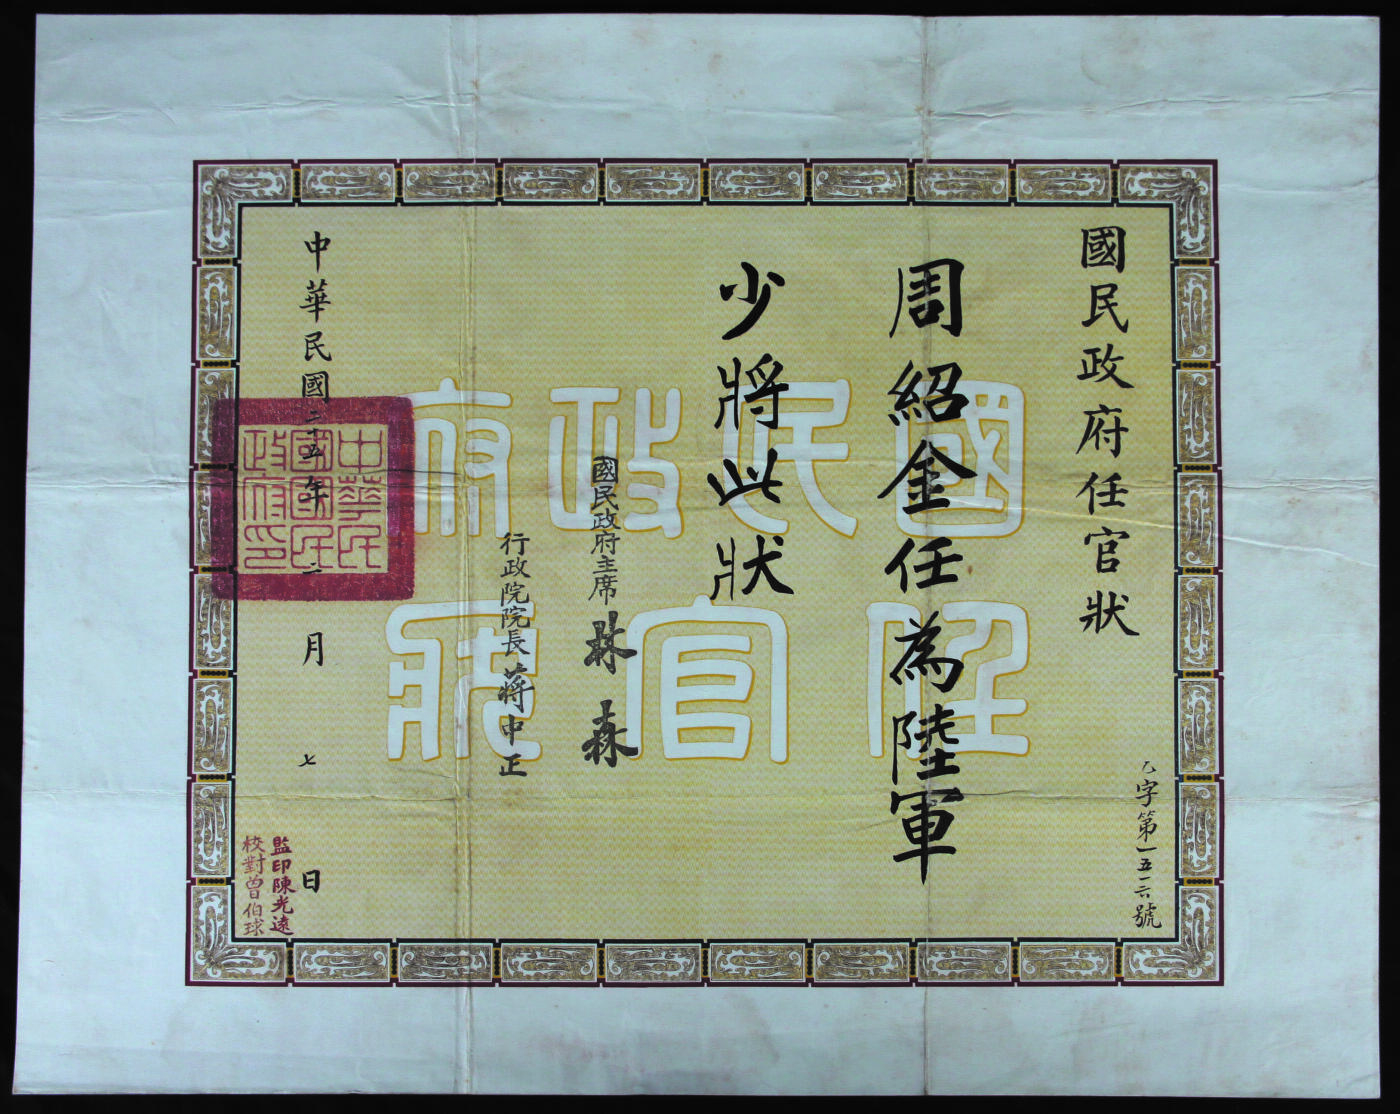 國民政府任官狀
乙字第一五一六號
周紹金任為陸軍
少將此狀
國民政府主席林森
行政院院長蔣中正
中華民國二十五年二月七日
監印陳光遠
校對曾伯球
國民政府
任官狀
中華民
國國民
政府印